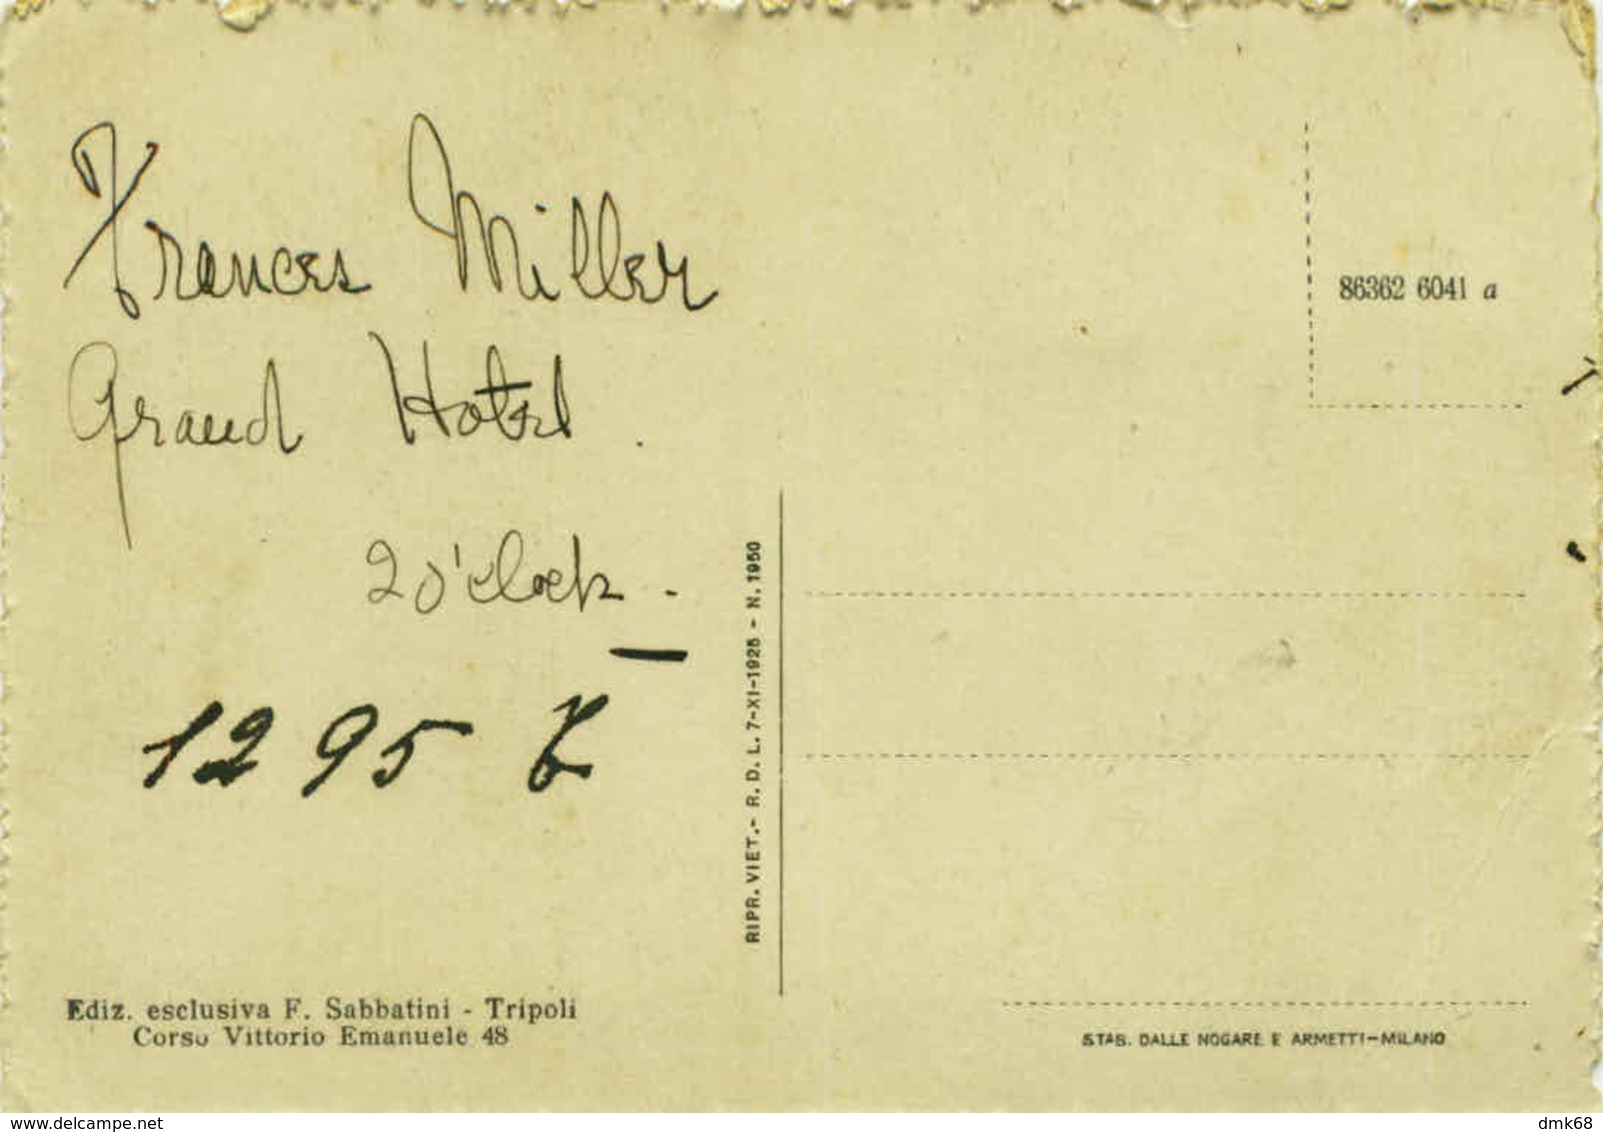 Frances Miller
Grand Hotel.
2 o'clock -
1295
86362 6041 a
RIPR. VIET. - R. D. L. 7-XI-1925 - N. 1950
Ediz. esclusiva F. Sabbatini - Tripoli
Corso Vittorio Emanuele 48
STAB. DALLE NOGARE E ARMETTI-MILANO
www.delcampe.net
dmk68